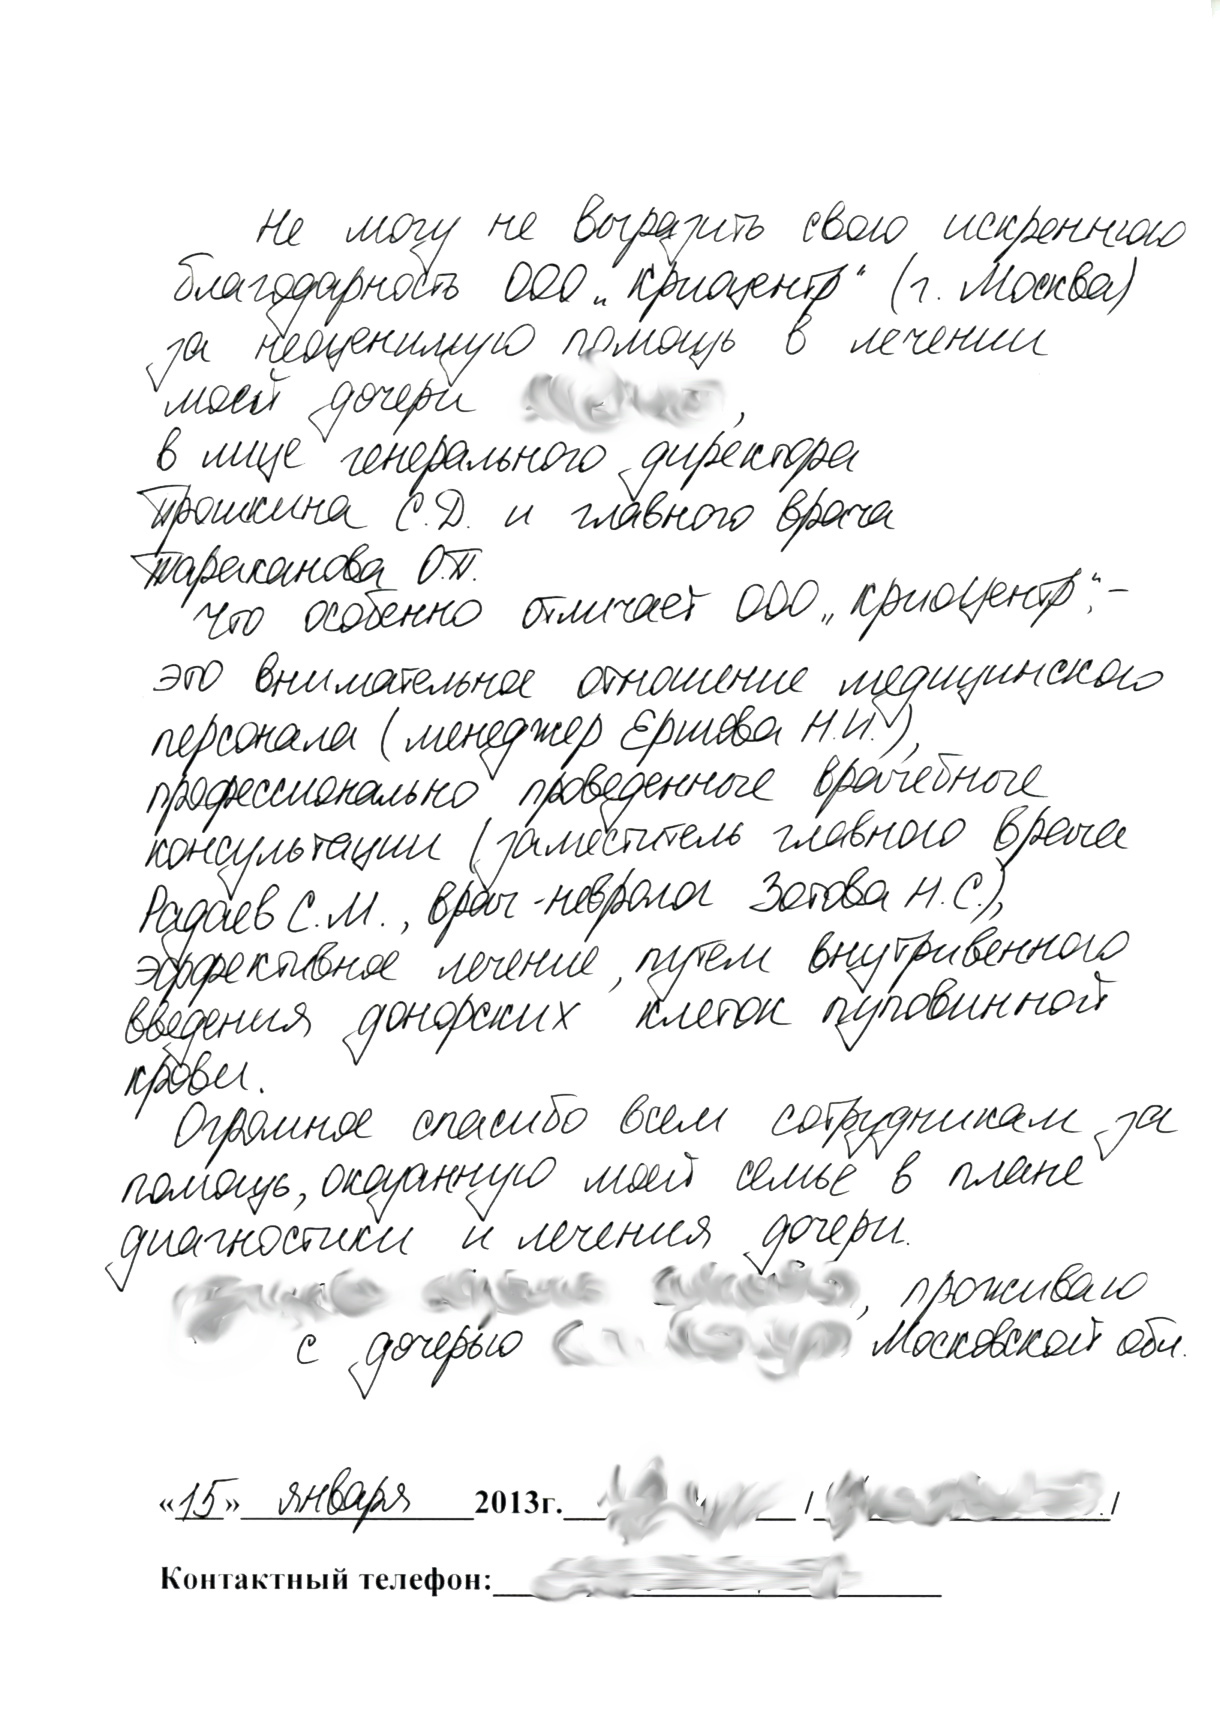 Не могу не выразить свою искреннюю
благодарность ООО „Криоцентр“ (г. Москва)
за неоценимую помощь в лечении
моей дочери ,
в лице генерального директора
Трошкина С.Д. и главного врача
Тараканова О.П.
Что особенно отличает ООО „Криоцентр“, -
это внимательное отношение медицинского
персонала (менеджер Ершова Н.И.),
профессионально проведенные врачебные
консультации (заместитель главного врача
Радаев С.М., врач-невролог Зотова Н.С.),
эффективное лечение, путем внутривенного
введения донорских клеток пуповинной
крови.
Огромное спасибо всем сотрудникам за
помощь, оказанную моей семье в плане
диагностики и лечения дочери.
, проживаю
с дочерью Московской обл.
«15» января 2013г. / /
Контактный телефон: